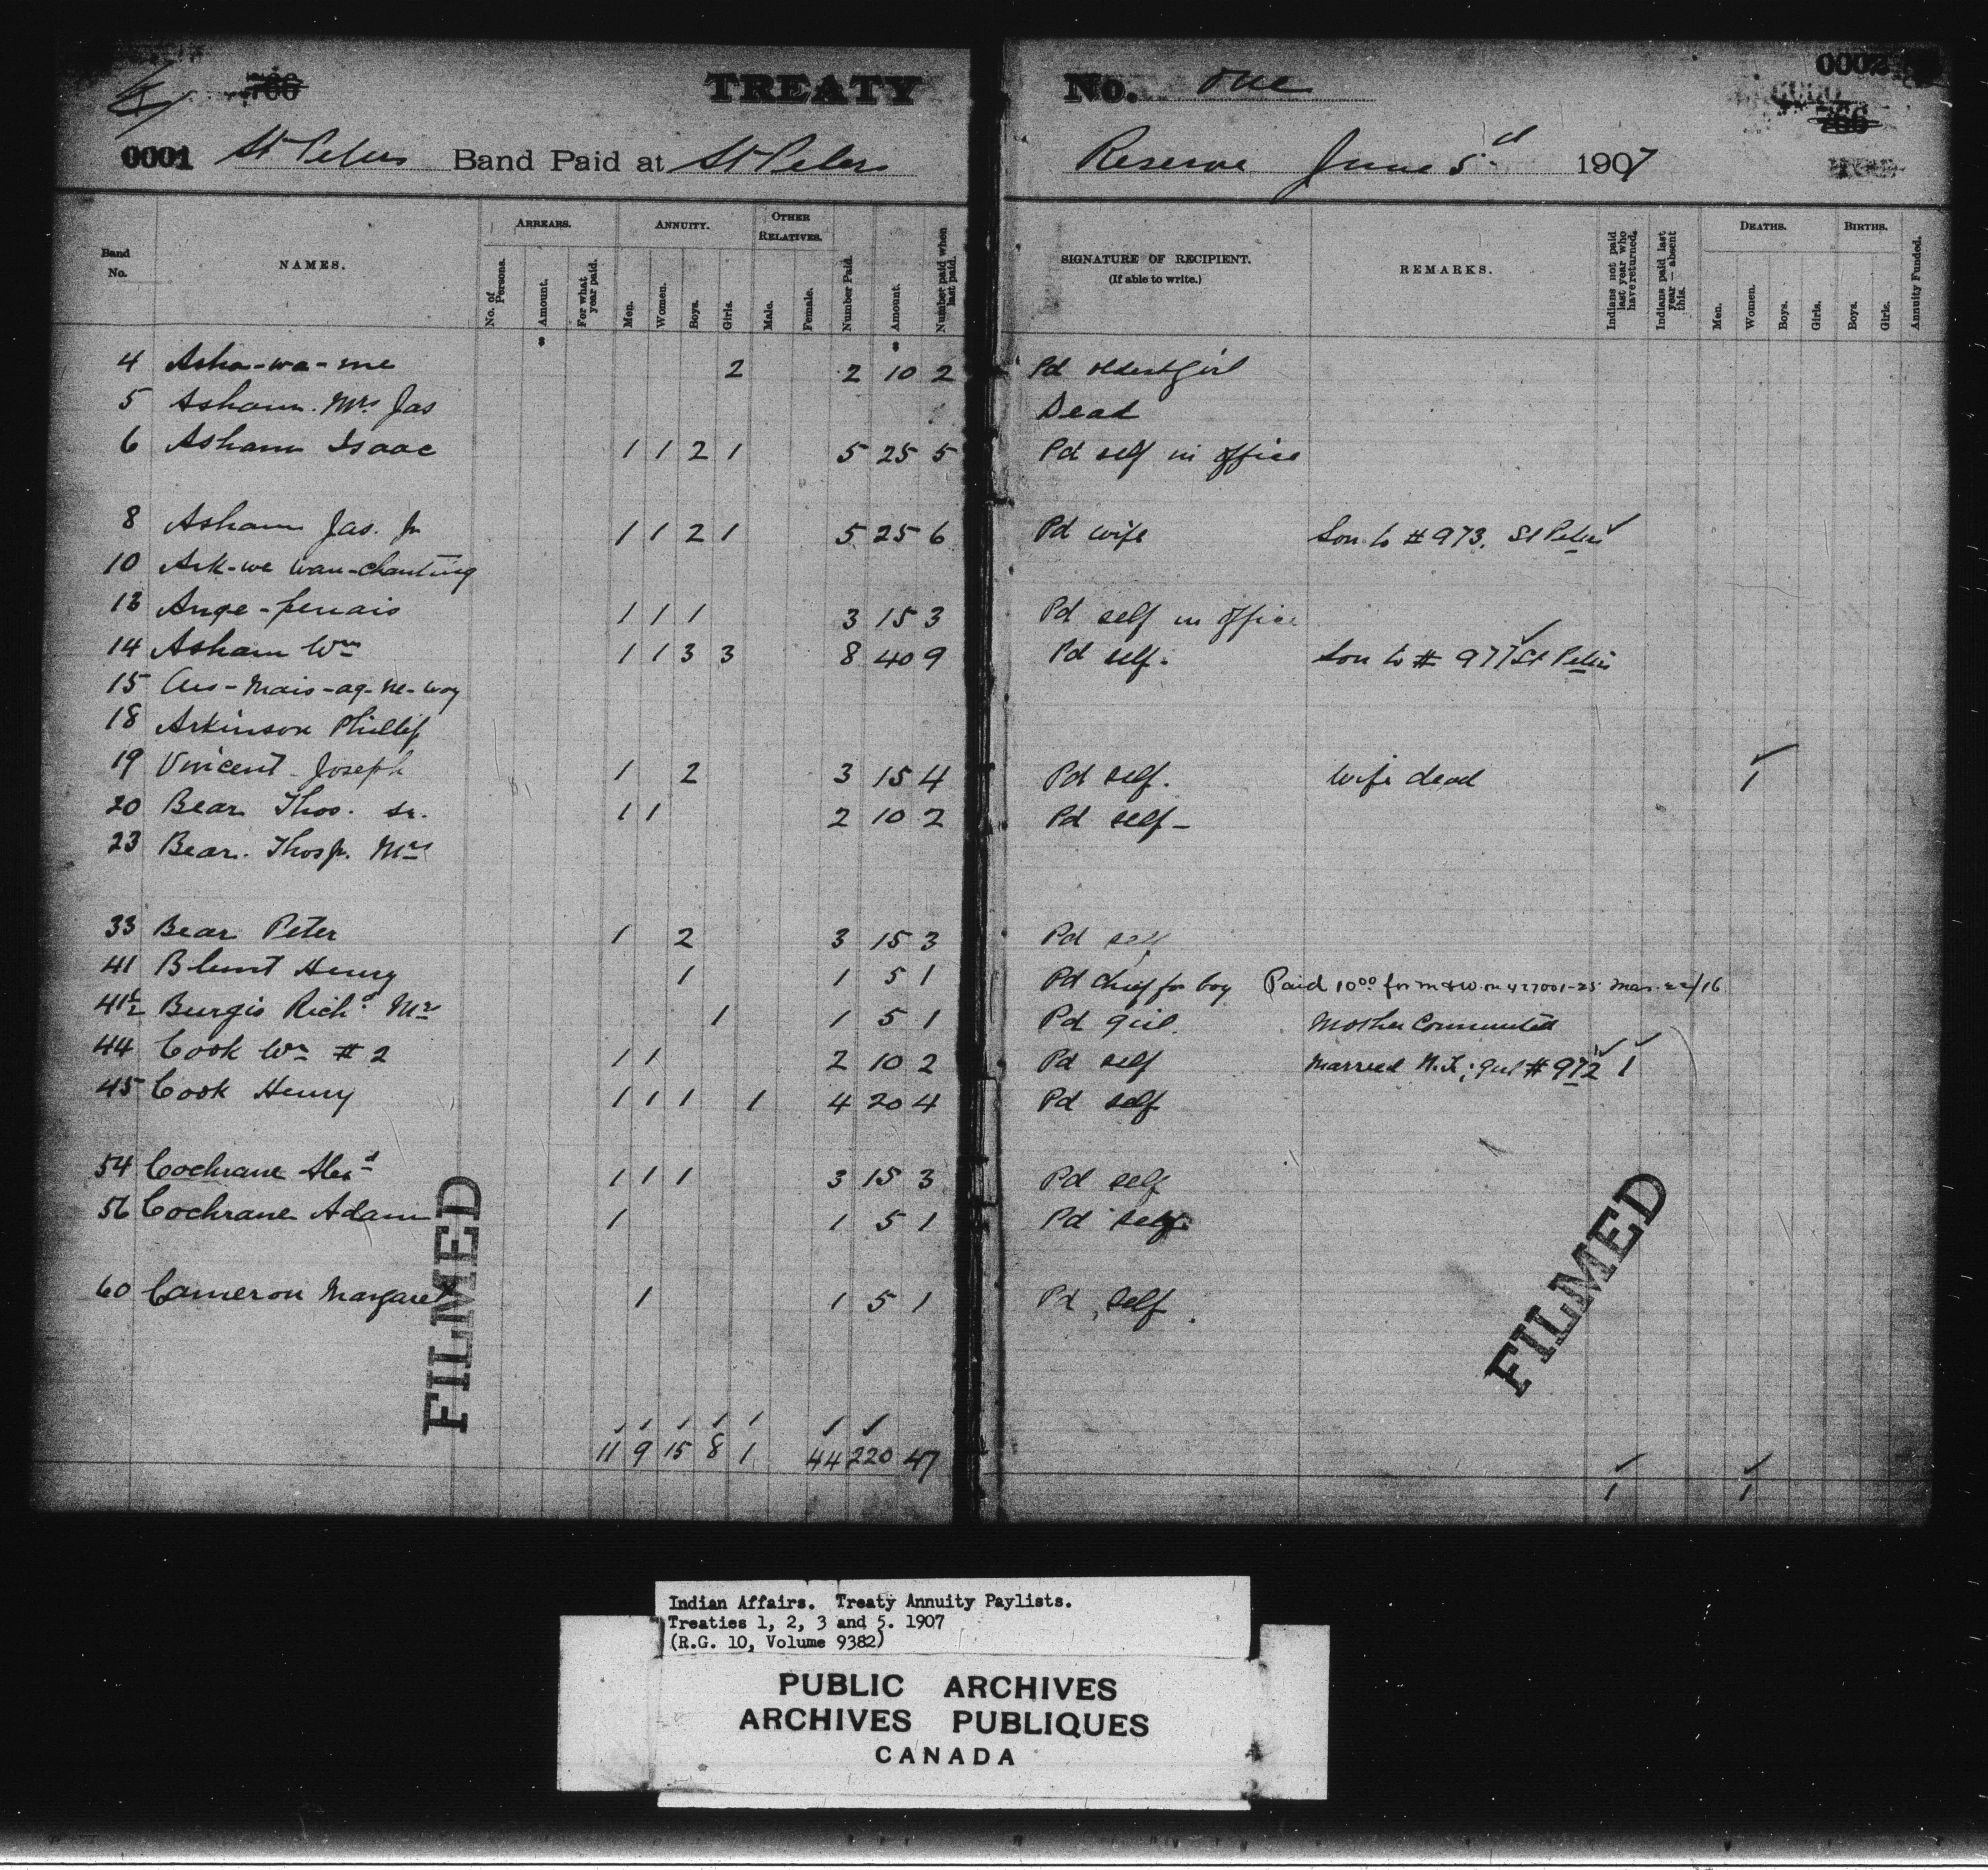 TREATY No. One
0001 St Peters Band Paid at St Peters Reserve June 5 1907
0002
Band No. NAMES. ARREARS. ANNUITY. OTHER RELATIVES. Number Paid. Amount. Number paid when last paid. SIGNATURE OF RECIPIENT. (If able to write.) REMARKS. Indians not paid last year who have returned. Indians paid last year — absent this. DEATHS. BIRTHS. Annuity Funded.
No. of Persons. Amount. For what year paid. Men. Women. Boys. Girls. Male. Female. Men. Women. Boys. Girls. Boys. Girls.
4 Asha-wa-me 2 2 10 2 Pd oldest girl
5 Asham Mrs Jas Dead
6 Asham Isaac 1 1 2 1 5 25 5 Pd self in office
8 Asham Jas. Jr 1 1 2 1 5 25 6 Pd wife Son to # 973. St Peters
10
13 1 1 1 3 15 3 Pd self in office
14 Asham Wm 1 1 3 3 8 40 9 Pd self. Son to # 977 St Peters
15
18 Arkinson Phillip
19 Vincent Joseph 1 2 3 15 4 Pd self. Wife dead 1
20 Bear Thos. Sr. 1 1 2 10 2 Pd self
23 Bear. Thos Jr. Mrs
33 Bear Peter 1 2 3 15 3 Pd self
41 Blunt Henry 1 1 5 1 Pd chief for boy Paid 1000 for m & W. Mar. 22/16
41½ Burgis Richd Mrs 1 1 5 1 Pd girl. Mother Commuted
44 Cook Wm # 2 1 1 2 10 2 Pd self Married N.T; girl # 972 1
45 Cook Henry 1 1 1 1 4 20 4 Pd self
54 Cochrane 1 1 1 3 15 3 Pd self
56 Cochrane Adam 1 1 5 1 Pd self
60 Cameron Margaret 1 1 5 1 Pd self
11 9 15 8 1 44 220 47 1 1
FILMED
FILMED
Indian Affairs. Treaty Annuity Paylists.
Treaties 1, 2, 3 and 5. 1907
(R.G. 10, Volume 9382)
PUBLIC ARCHIVES
ARCHIVES PUBLIQUES
CANADA